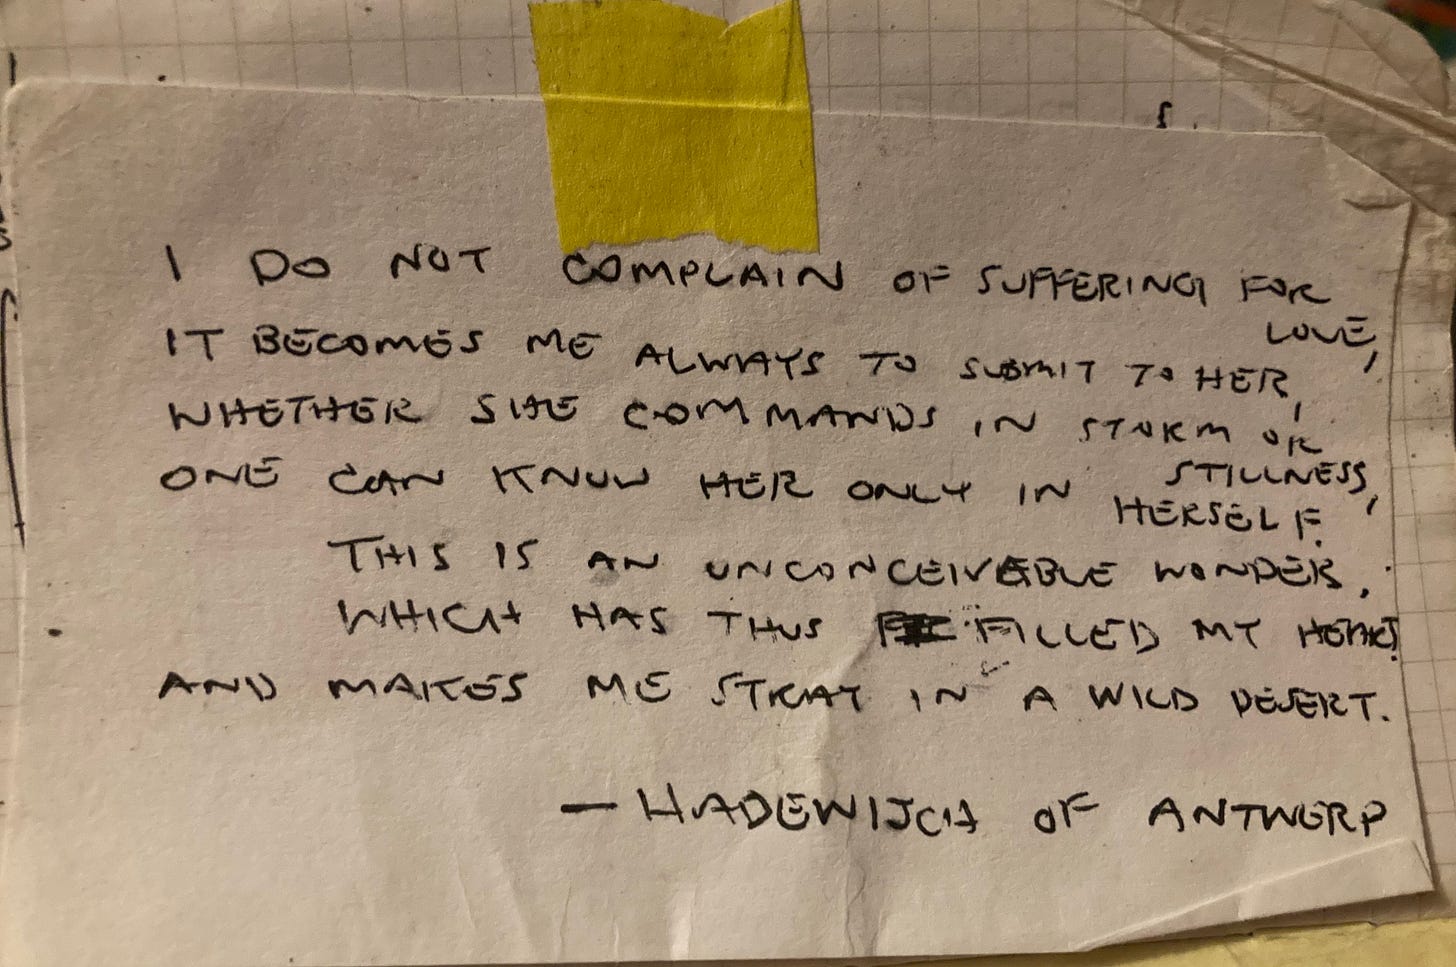 I DO NOT COMPLAIN OF SUFFERING FOR LOVE,
IT BECOMES ME ALWAYS TO SUBMIT TO HER,
WHETHER SHE COMMANDS IN STORM OR STILLNESS,
ONE CAN KNOW HER ONLY IN HERSELF.
THIS IS AN UNCONCEIVABLE WONDER,
WHICH HAS THUS FILLED MY HEART
AND MAKES ME STRAY IN A WILD DESERT.
— HADEWIJCH OF ANTWERP